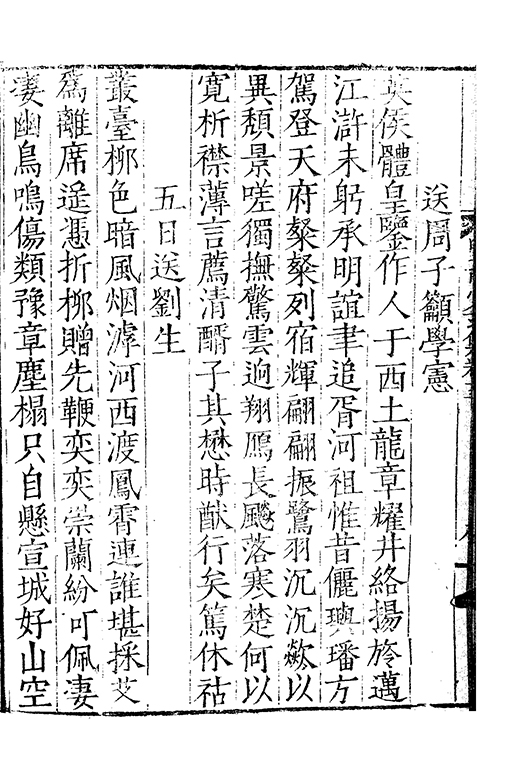 送周子籲學憲
英侯體皇鑒作人于西土龍章耀井絡揚旍邁
江滸未躬承明誼聿追胥河祖惟昔儷璵璠方
駕登天府粲粲列宿輝翩翩振鷺羽沉沉歘以
異頹景嗟獨撫驚雲逈翔鴈長飈落寒楚何以
寬析襟薄言薦清醑子其懋時猷行矣篤休祜
五日送劉生
叢臺柳色暗風烟滹河西渡鳳霄連誰堪採艾
為離席遥憑折柳贈先鞭奕奕崇蘭紛可佩萋
萋幽鳥鳴傷類豫章塵榻只自懸宣城好山空